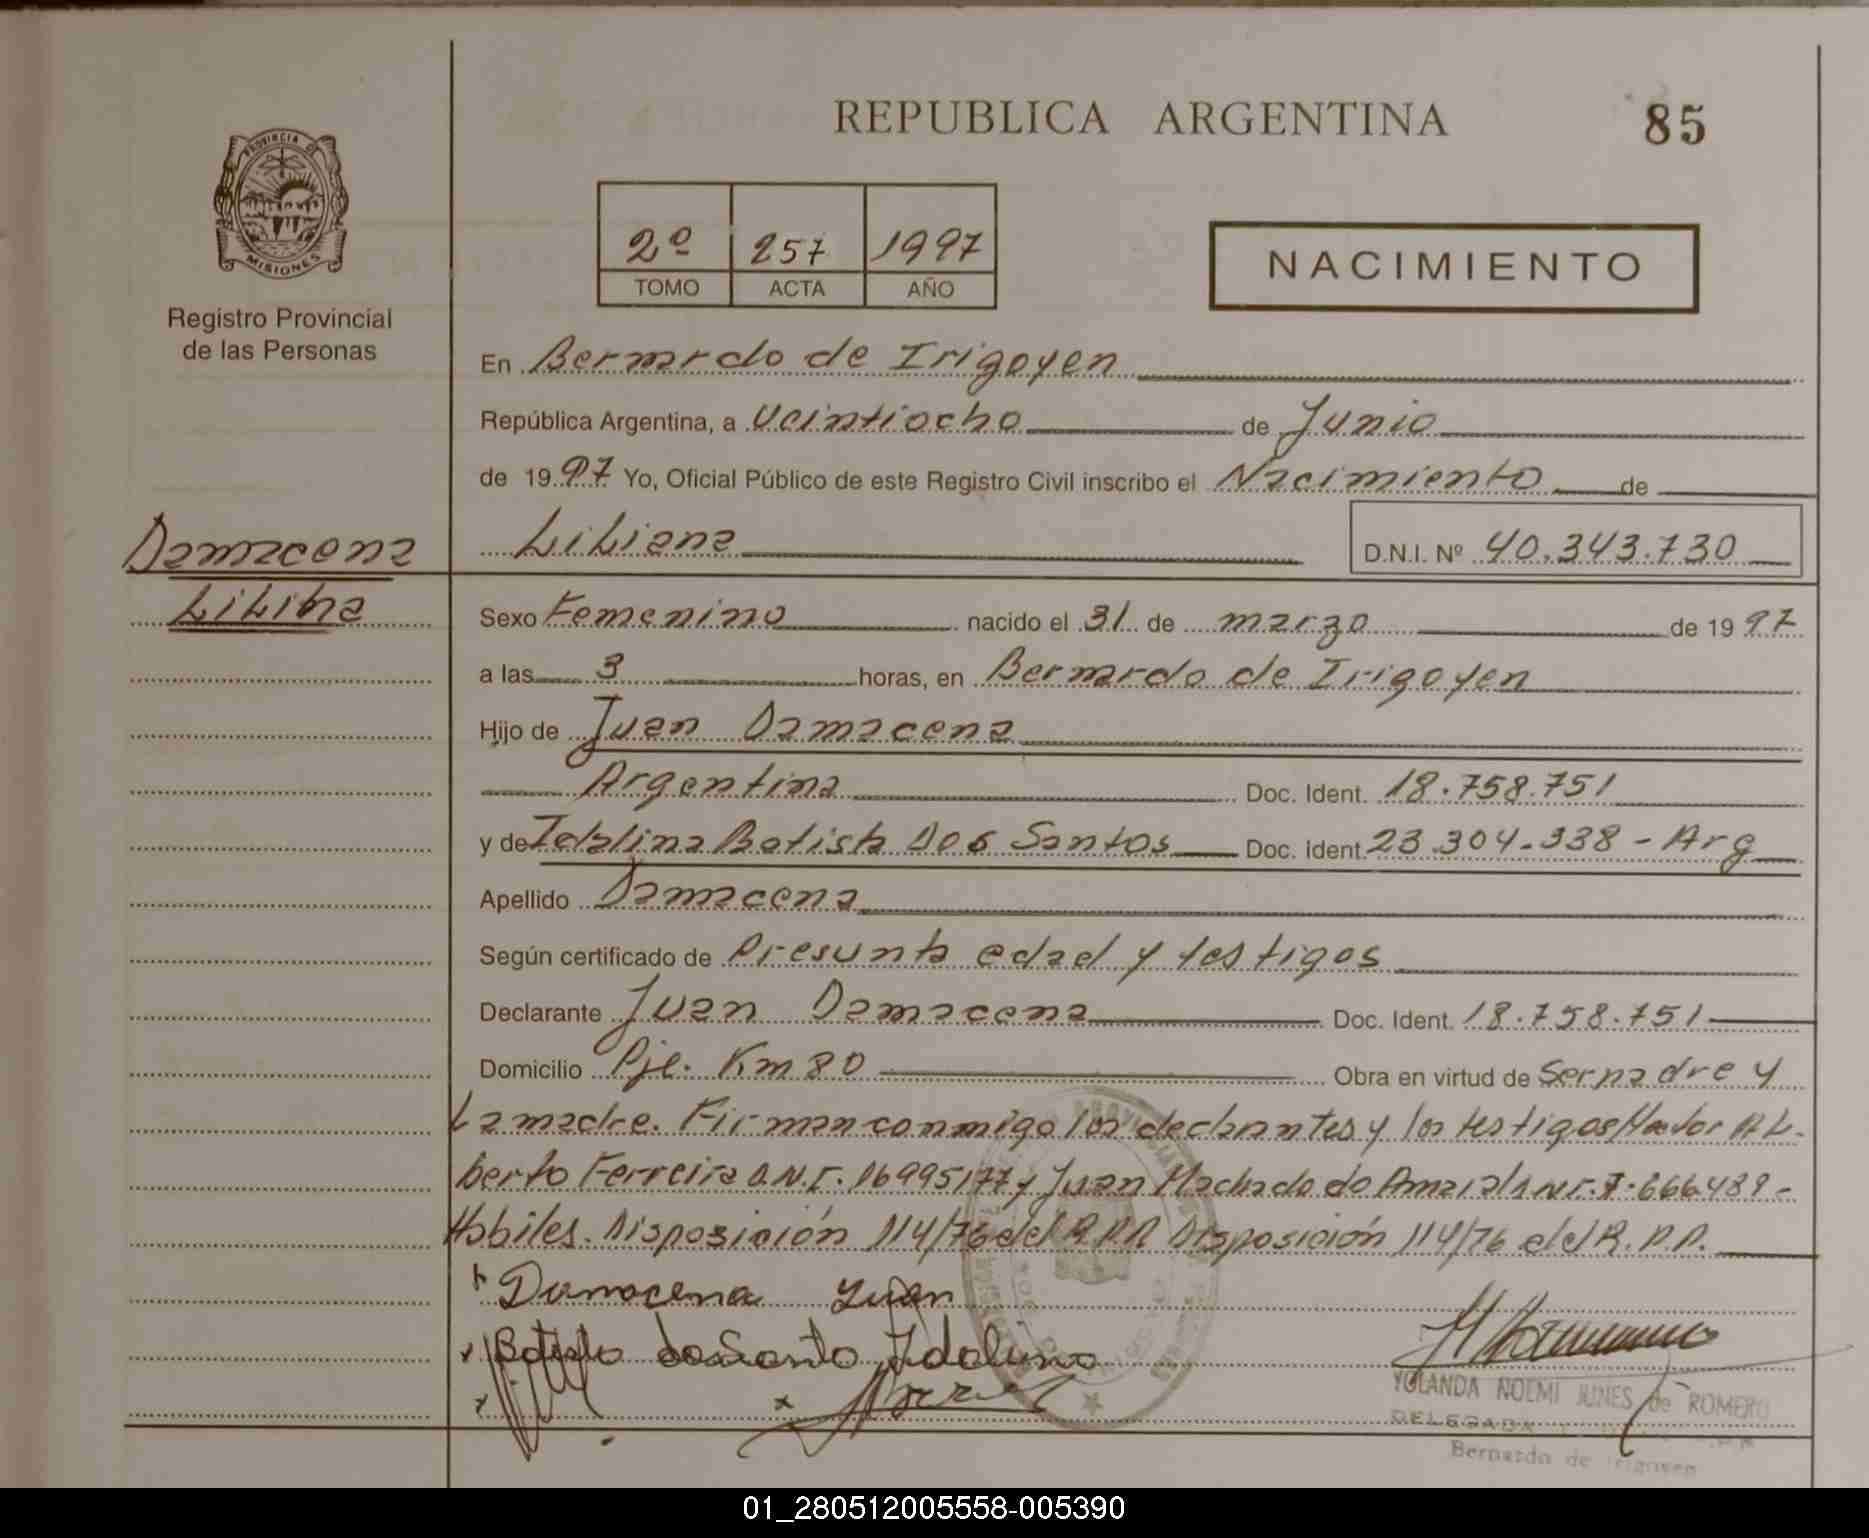 REPUBLICA ARGENTINA
85
PROVINCIA DE
MISIONES
Registro Provincial
de las Personas
2º 257 1997
TOMO ACTA AÑO
NACIMIENTO
En Bernardo de Irigoyen
República Argentina, a veintiocho de Junio
de 1997 Yo, Oficial Público de este Registro Civil inscribo el Nacimiento de
Liliana D.N.I. Nº 40.343.730
Damacena
Sexo Femenino nacido el 31 de marzo de 1997
a las 3 horas, en Bernardo de Irigoyen
Hijo de Juan Damacena
Argentina Doc. Ident. 18.758.751
y de Idalina Batista Dos Santos Doc. Ident. 23.304.338 - Arg
Apellido Damacena
Según certificado de Presunta edad y testigos
Declarante Juan Damacena Doc. Ident. 18.758.751
Domicilio Pje. Km 80 Obra en virtud de Ser padre y
La madre. Firman conmigo los declarantes y los testigos AL-
berto Ferreira D.N.I. 16995177 y Juan Machado do Amaral 7.666.489-
Habiles. Disposición 114/76 del R.P.P. Disposición 114/76 del R.P.P.
Damacena Juan
dos Santo Idalina
YOLANDA NOEMI JUNES de ROMERO
DELEGADA
Bernardo de Irigoyen
01_280512005558-005390